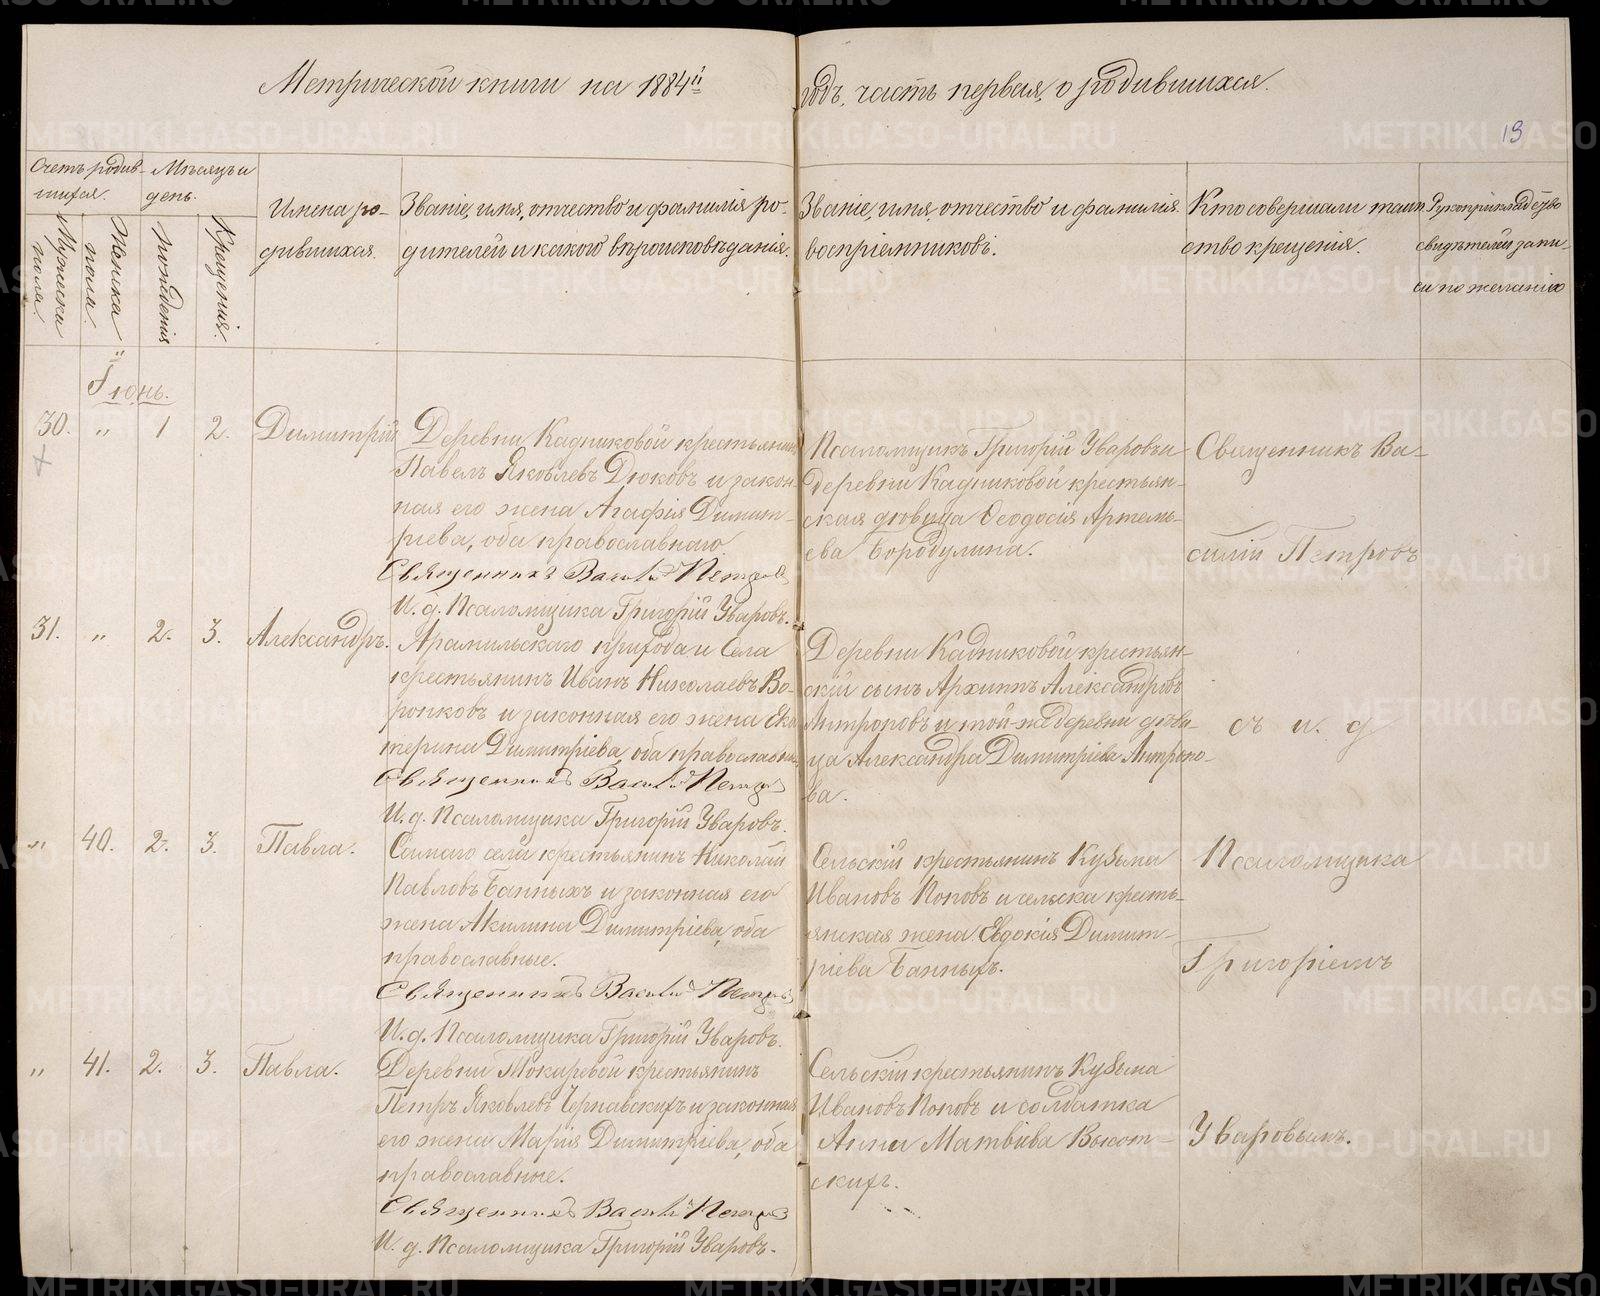 Метрической книги на 1884й годъ, часть первая, о родившихся.
19
Счетъ родив-
шихся.
Мѣсяцъ и
день.
Мужеска
пола.
Женска
пола.
рожденія
Крещенія.
Имена ро-
дившихся.
Званіе, имя, отчество и фамилія ро-
дителей и какого вѣроисповѣданія.
Званіе, имя, отчество и фамилія
воспріемниковъ.
Кто совершалъ таин
ство крещенія.
Рукоприкладство
свидѣтелей запи-
си по желанію
Іюнь.
30. " 1 2. Димитрій
Деревни Кадниковой крестьянинъ
Павелъ Яковлевъ Дюковъ и закон-
ная его жена Агафія Димит-
ріева, оба православнаго
Священникъ Василій Петровъ
И. д. Псаломщика Григорій Уваровъ.
Псаломщикъ Григорій Уваровъ и
деревни Кадниковой крестьян-
ская дѣвица Ѳеодосія Артемь-
ева Бородулина.
Священникъ Ва-
силій Петровъ
31. " 2. 3. Александръ.
Арамильскаго прихода и Села
крестьянинъ Иванъ Николаевъ Во-
ронковъ и законная его жена Ека
терина Димитріева, оба православные
Священникъ Василій Петровъ
И. д. Псаломщика Григорій Уваровъ.
Деревни Кадниковой крестьян-
скій сынъ Архиппъ Александровъ
Антроповъ и той-же деревни дѣви-
ца Александра Димитріева Антропо-
ва.
съ и. д
" 40. 2. 3. Павла.
Самаго села крестьянинъ Николай
Павловъ Банныхъ и законная его
жена Акилина Димитріева, оба
православные.
Священникъ Василій Петровъ
И. д. Псаломщика Григорій Уваровъ.
Сельскій крестьянинъ Кузьма
Ивановъ Поповъ и сельска кресть-
янская жена Евдокія Димит-
ріева Банныхъ.
Псаломщика
Григоріемъ
" 41. 2. 3. Павла.
Деревни Мокаревой крестьянинъ
Петръ Яковлевъ Чернавскихъ и законная
его жена Марія Димитріева, оба
православные.
Священникъ Василій Петровъ
И. д. Псаломщика Григорій Уваровъ.
Сельскій крестьянинъ Кузьма
Ивановъ Поповъ и солдатка
Анна Матвѣева Высот-
скихъ.
Уваровымъ.
METRIKI.GASO-URAL.RU